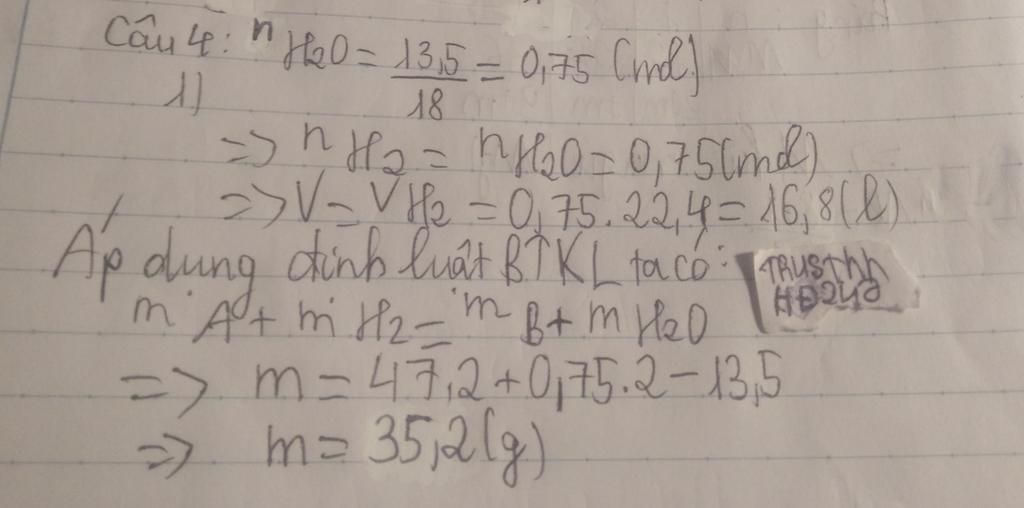 Câu 4: nH2O = 13,5/18 = 0,75 (mol)
1)
=> nH2 = nH2O = 0,75(mol)
=> V = VH2 = 0,75.22,4 = 16,8(l)
Áp dung định luật BTKL ta có:
TRUSThh
HĐ248
mA + mH2 = mB + mH2O
=> m = 47,2+0,75.2-13,5
=> m = 35,2(g)